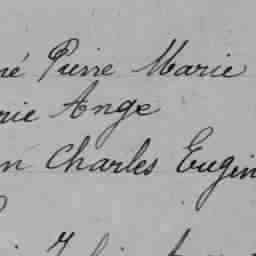 né Pierre Marie
rie Ange
n Charles Eugèn